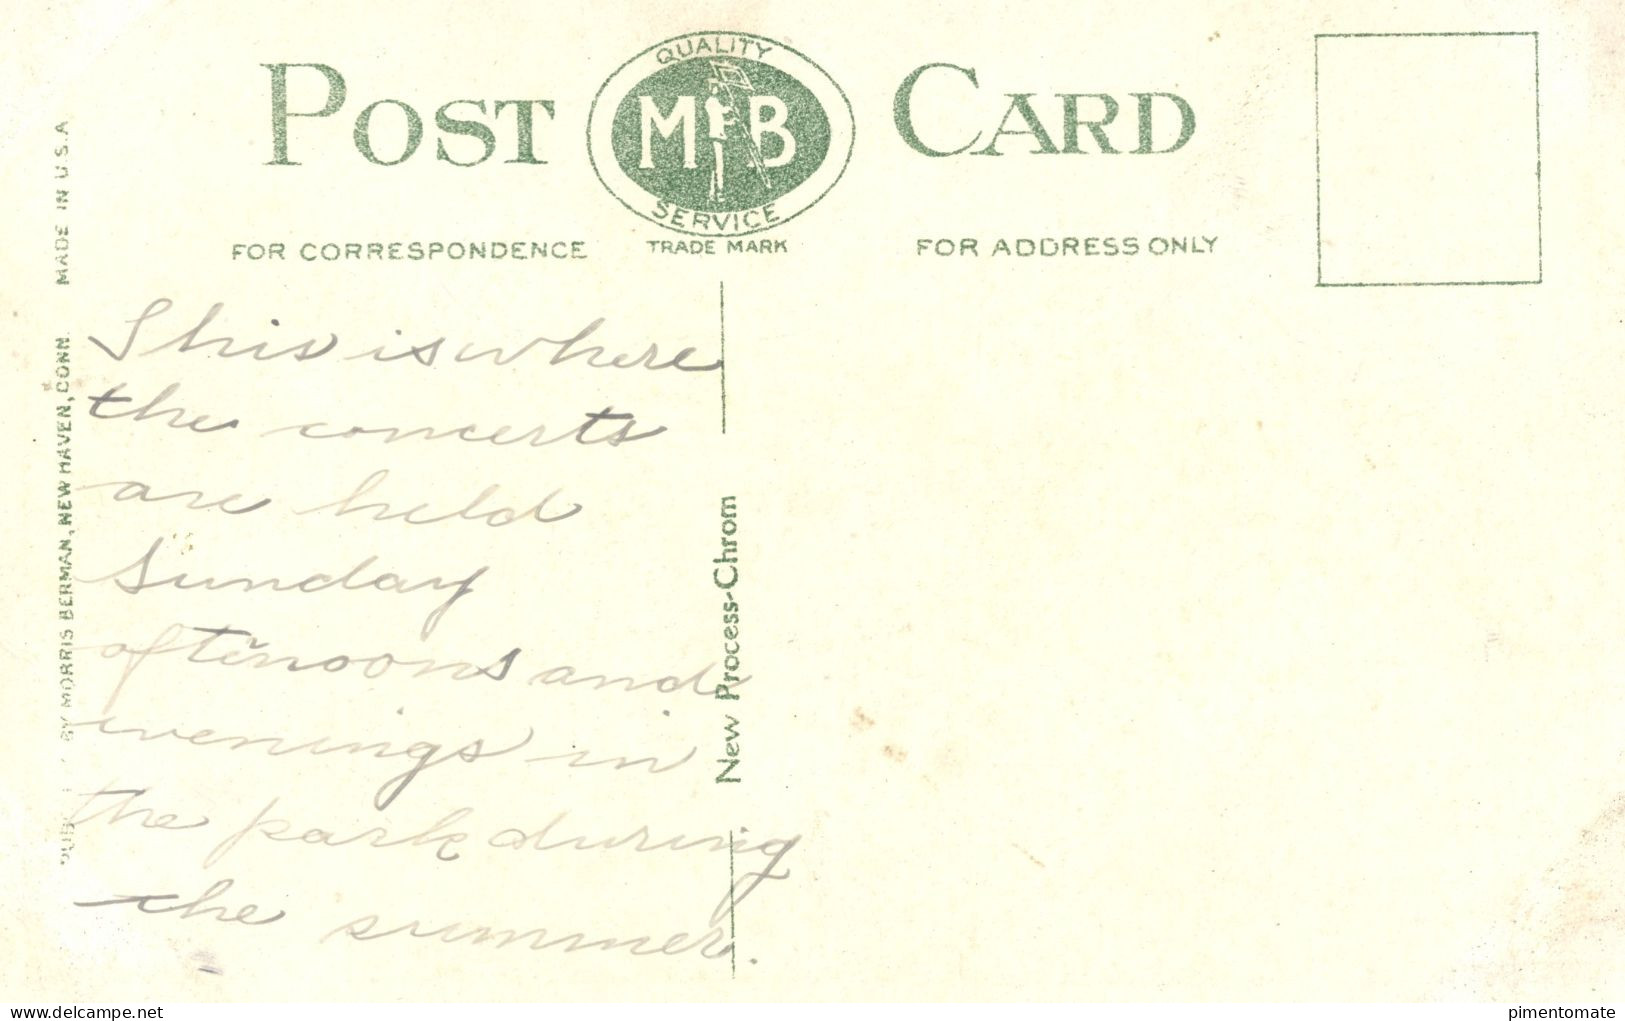 POST CARD
QUALITY
M B
SERVICE
TRADE MARK
FOR CORRESPONDENCE
FOR ADDRESS ONLY
This is where
the concerts
are held
Sunday
afternoons and
evenings in
the park during
the summer.
BY MORRIS BERMAN, NEW HAVEN, CONN. MADE IN U.S.A
New Process-Chrom
www.delcampe.net
pimentomate